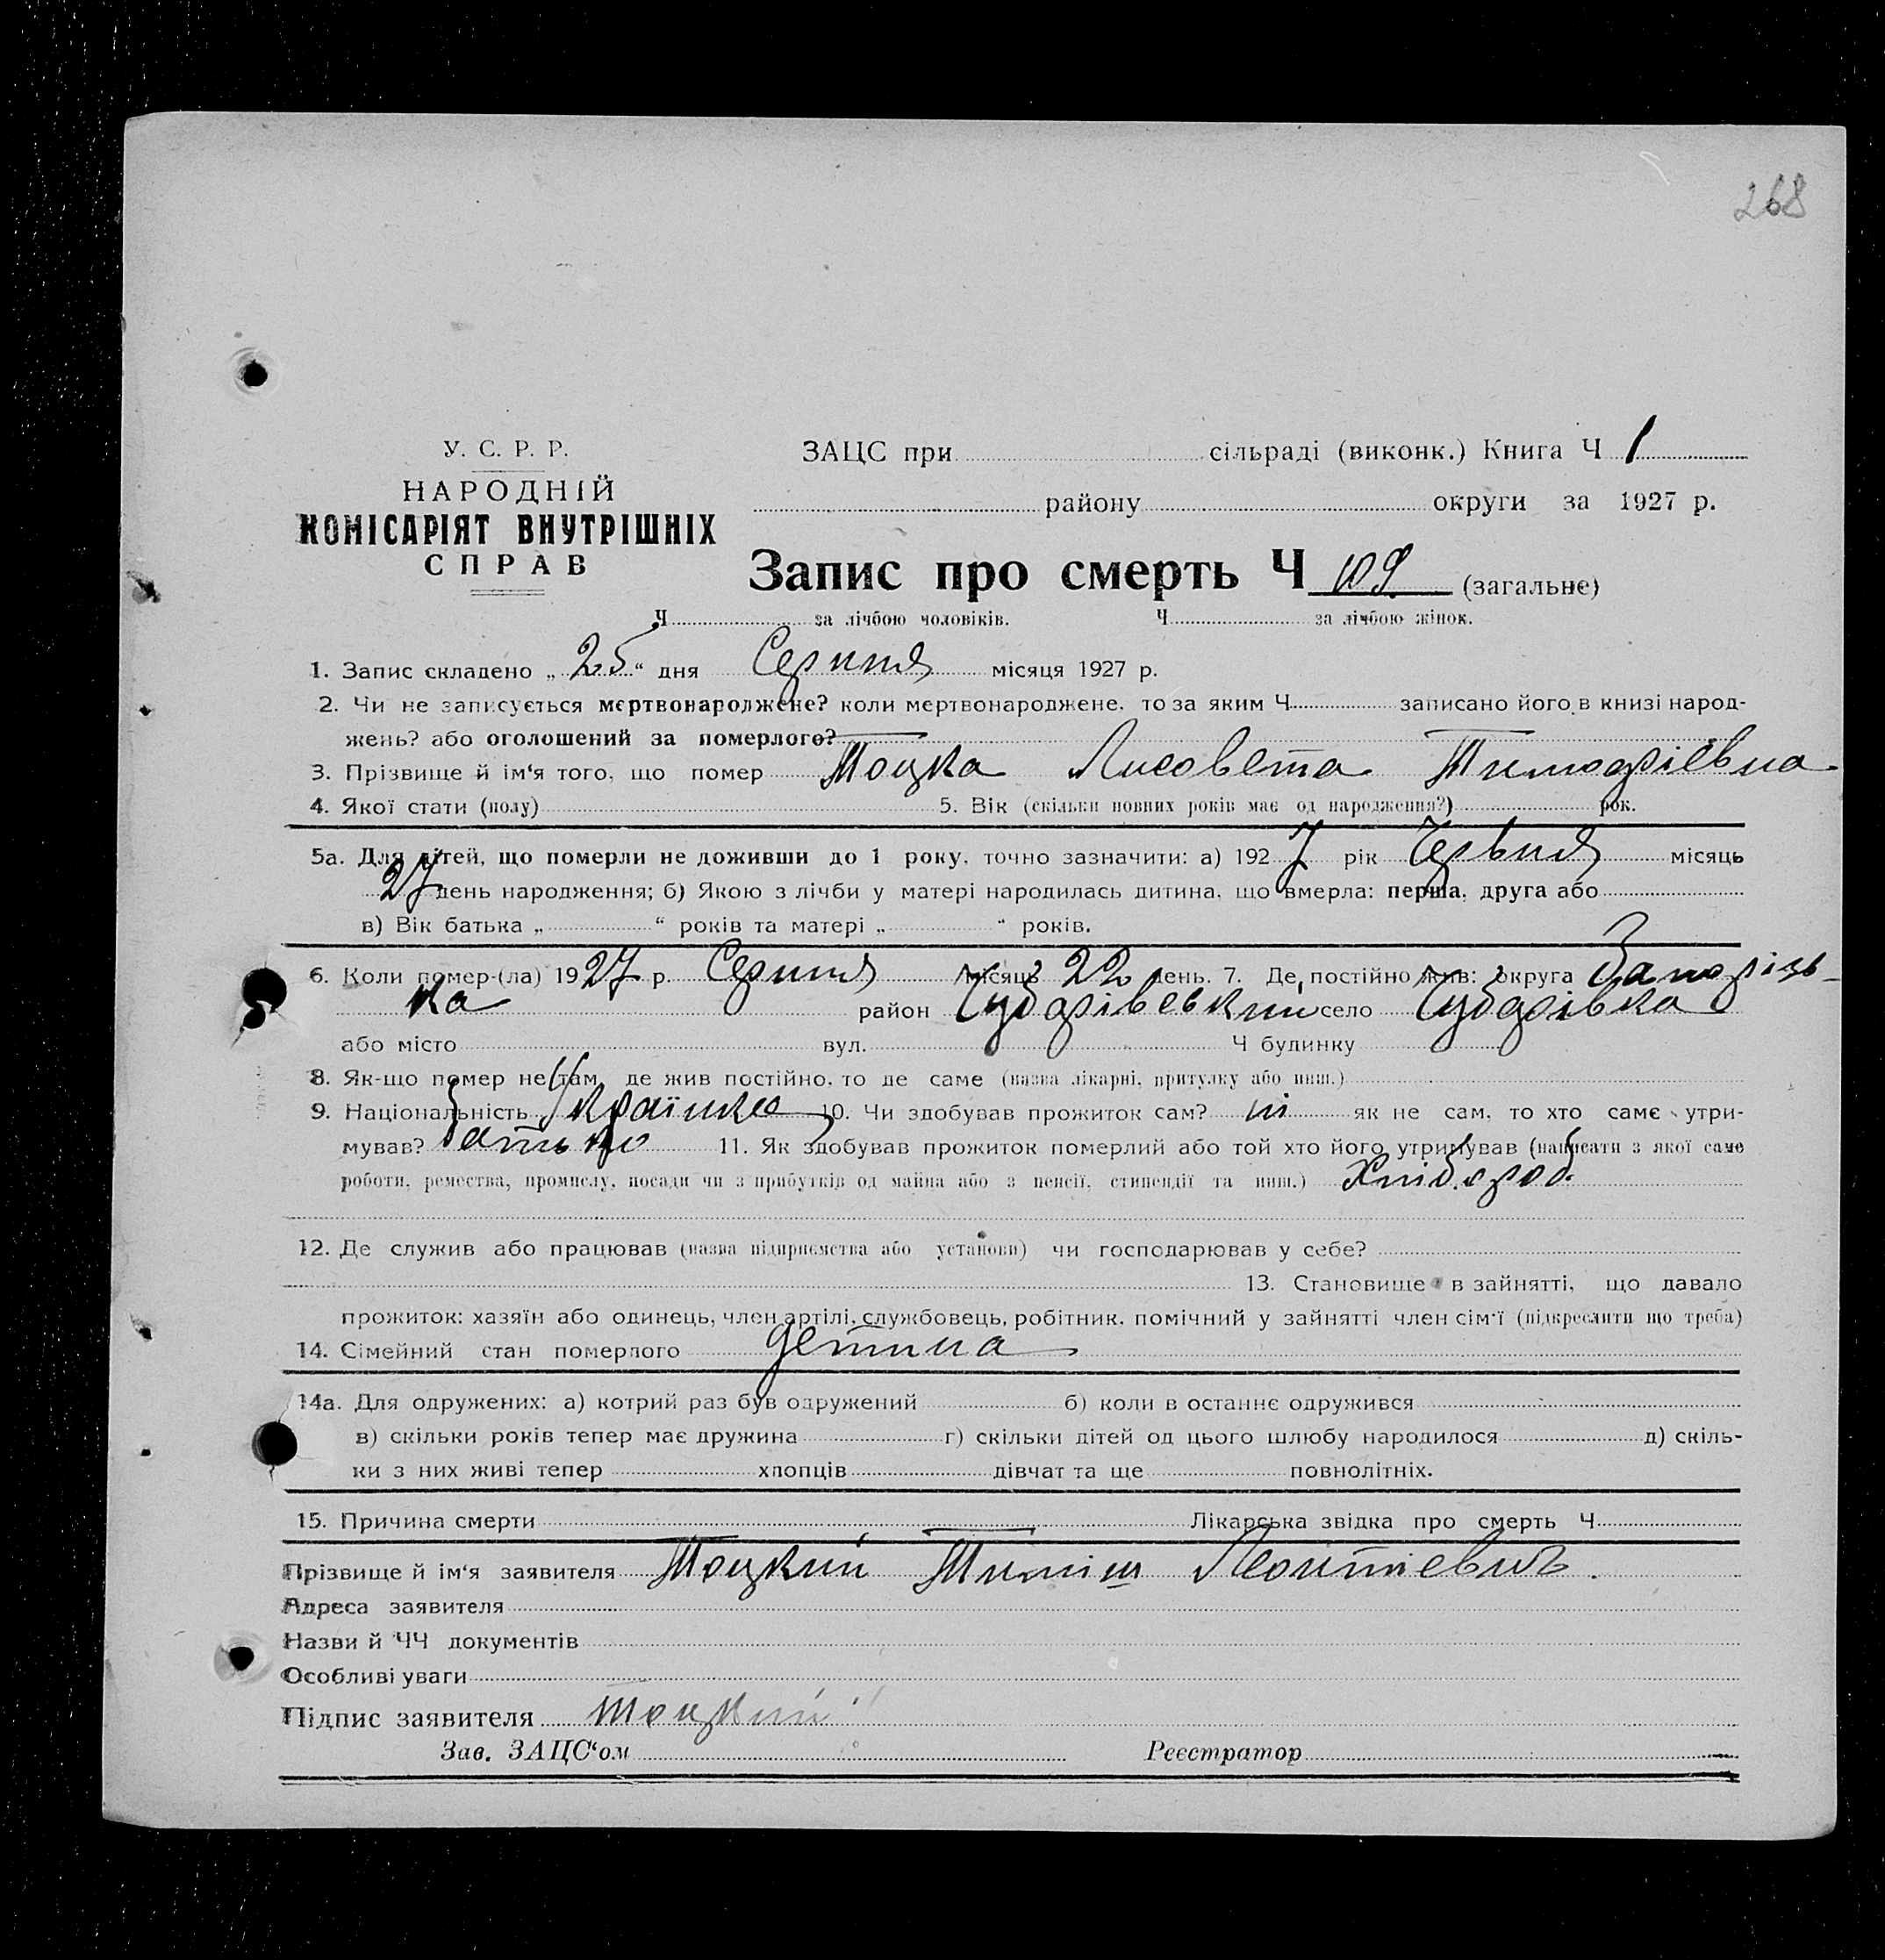 268
У. С. Р. Р.
НАРОДНІЙ
КОМІСАРІЯТ ВНУТРІШНІХ
СПРАВ
ЗАЦС при сільраді (виконк.) Книга Ч 1
району округи за 1927 р.
Запис про смерть Ч 109 (загальне)
Ч за лічбою чоловіків. Ч за лічбою жінок.
1. Запис складено „ 25 “ дня Серпня місяця 1927 р.
2. Чи не записується мертвонароджене? коли мертвонароджене, то за яким Ч записано його в книзі народ-
жень? або оголошений за померлого?
3. Прізвище й ім‘я того, що помер Тоцка Лисовета Тимофіевна
4. Якої стати (полу) 5. Вік (скільки повних років має од народження?) рок.
5а. Для дітей, що померли не доживши до 1 року, точно зазначити: а) 1927 рік Червня місяць
27 день народження; б) Якою з лічби у матері народилась дитина, що вмерла: перша, друга або
в) Вік батька „ “ років та матері „ “ років.
6. Коли помер-(ла) 1927 р. Серпня місяць 22 день. 7. Де постійно жив: округа Запорізь-
ка район Чубарівський село Чубарівка
або місто вул. Ч будинку
8. Як-що помер не там, де жив постійно, то де саме (назва лікарні, притулку або инш.)
9. Національність Українка 10. Чи здобував прожиток сам? ні як не сам, то хто саме утри-
мував? батько 11. Як здобував прожиток померлий або той хто його утримував (написати з якої саме
роботи, ремества, промислу, посади чи з прибутків од майна або з пенсії, стипендії та инш.) Хліб.ороб.
12. Де служив або працював (назва підприємства або установи) чи господарював у себе?
13. Становище в зайнятті, що давало
прожиток: хазяїн або одинець, член артілі, службовець, робітник, помічний у зайнятті член сім‘ї (підкреслити що треба)
14. Сімейний стан померлого детина
14а. Для одружених: а) котрий раз був одружений б) коли в останнє одружився
в) скільки років тепер має дружина г) скільки дітей од цього шлюбу народилося д) скіль-
ки з них живі тепер хлопців дівчат та ще повнолітніх.
15. Причина смерти Лікарська звідка про смерть Ч
Прізвище й ім‘я заявителя Тоцкий Тиміш Леонтіевич.
Адреса заявителя
Назви й ЧЧ документів
Особливі уваги
Підпис заявителя Тоцкий
Зав. ЗАЦС‘ом Реєстратор